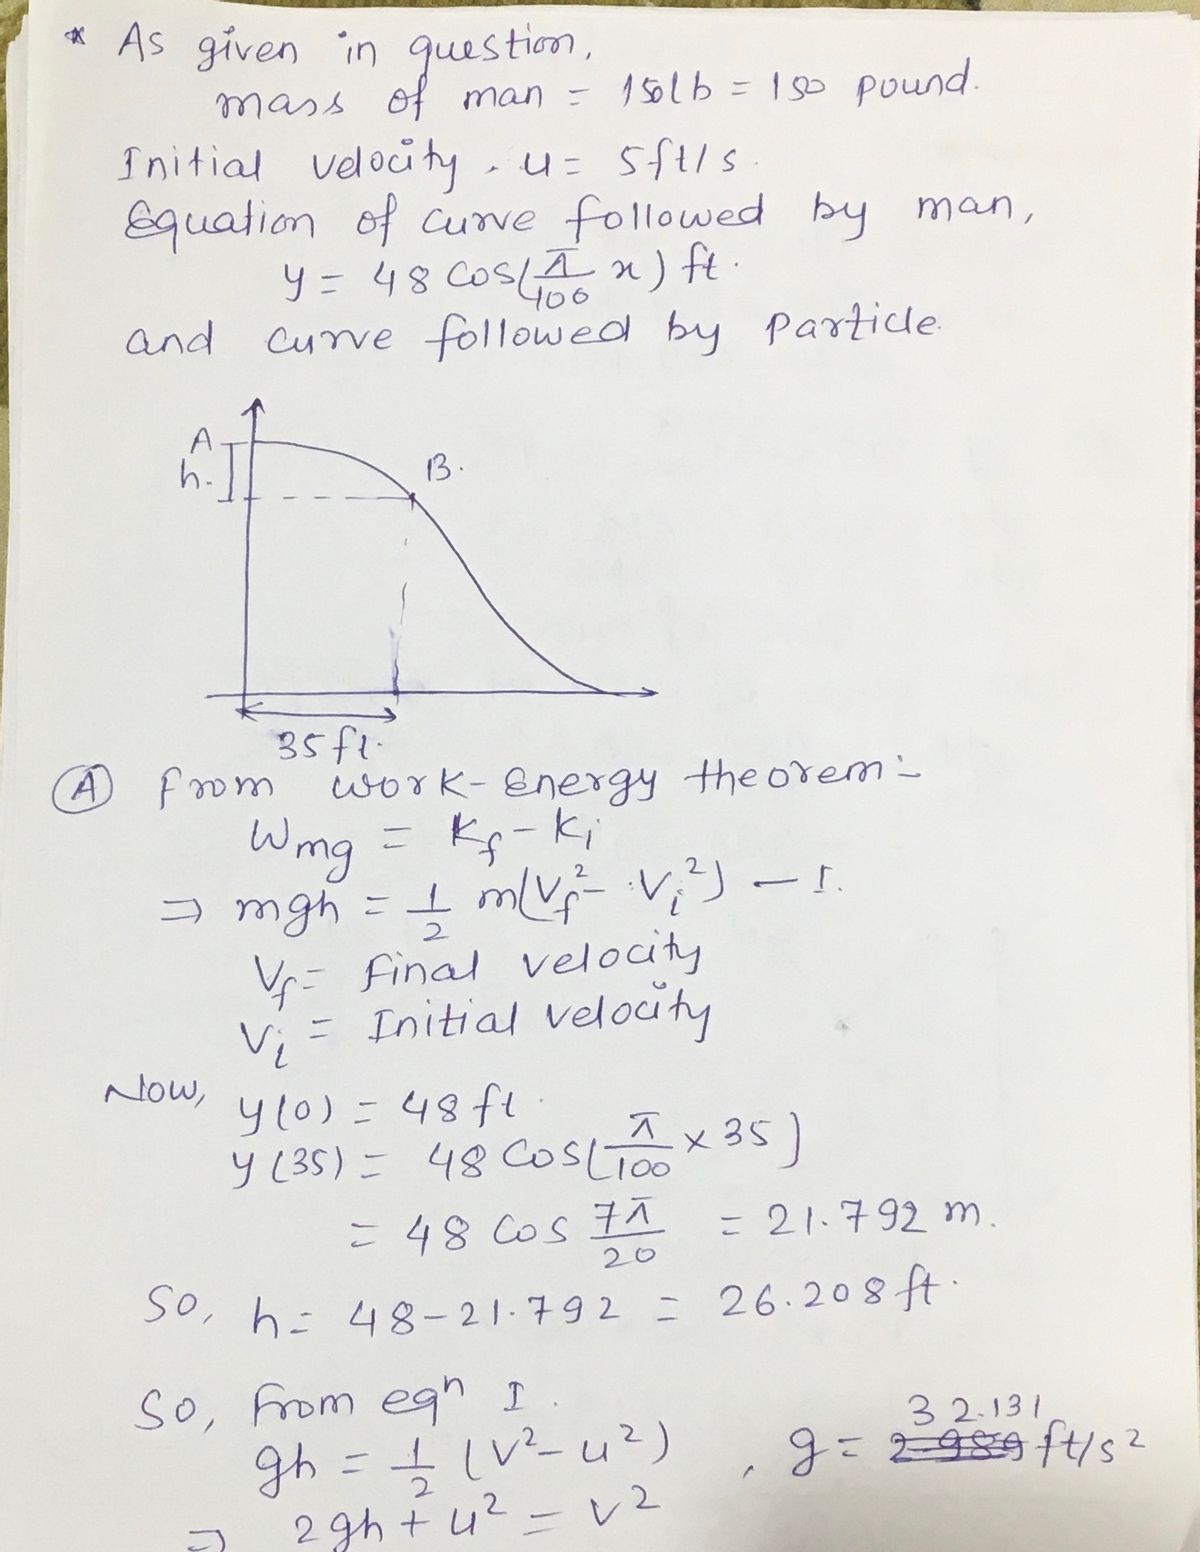 * As given in question,
mass of man = 150lb = 150 pound.
Initial velocity, u = 5ft/s.
Equation of curve followed by man,
y = 48 cos(π/100 x) ft.
and curve followed by particle.
A
h.
B.
35 ft.
Ⓐ From work-Energy theorem:-
Wmg = Kf - Ki
⇒ mgh = 1/2 m(Vf² - Vi²) — I.
Vf = Final velocity
Vi = Initial velocity
Now, y(0) = 48 ft.
y(35) = 48 cos(π/100 × 35)
= 48 cos 7π/20 = 21.792 m.
So, h = 48-21.792 = 26.208 ft.
So, from eqⁿ I.
gh = 1/2 (v² - u²) , g = 32.131 ft/s²
⇒ 2gh + u² = v²